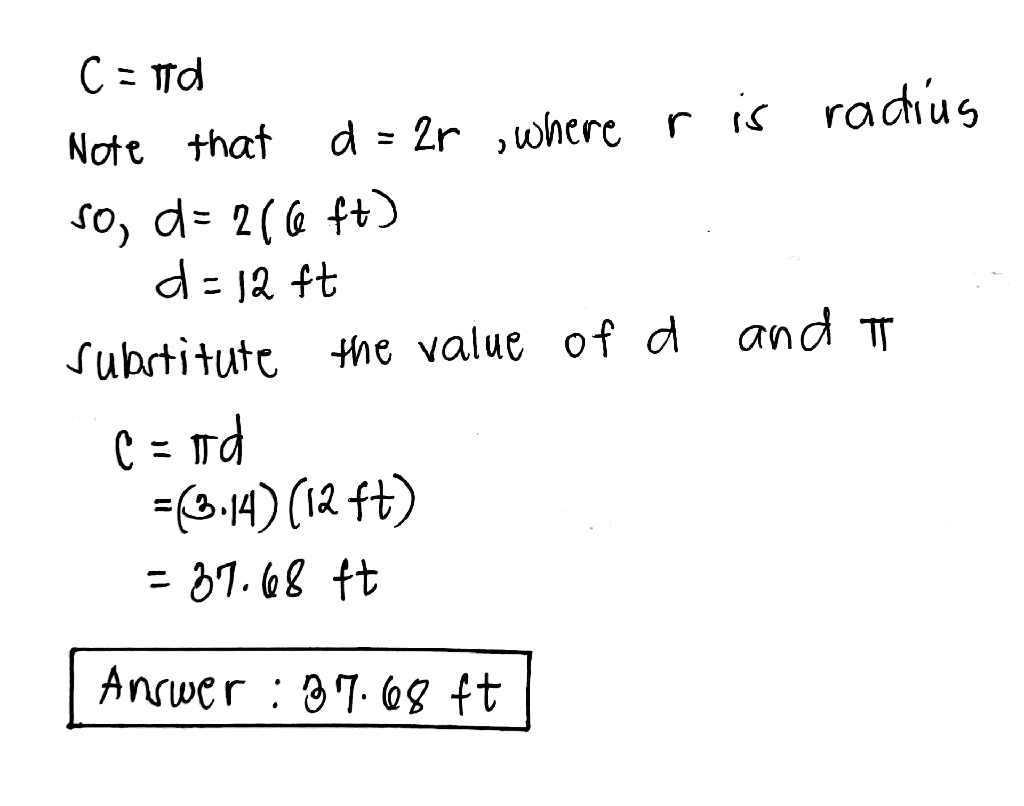 C = πd
Note that d = 2r , where r is radius
so, d = 2(6 ft)
d = 12 ft
substitute the value of d and π
C = πd
= (3.14) (12 ft)
= 37.68 ft
Answer : 37.68 ft